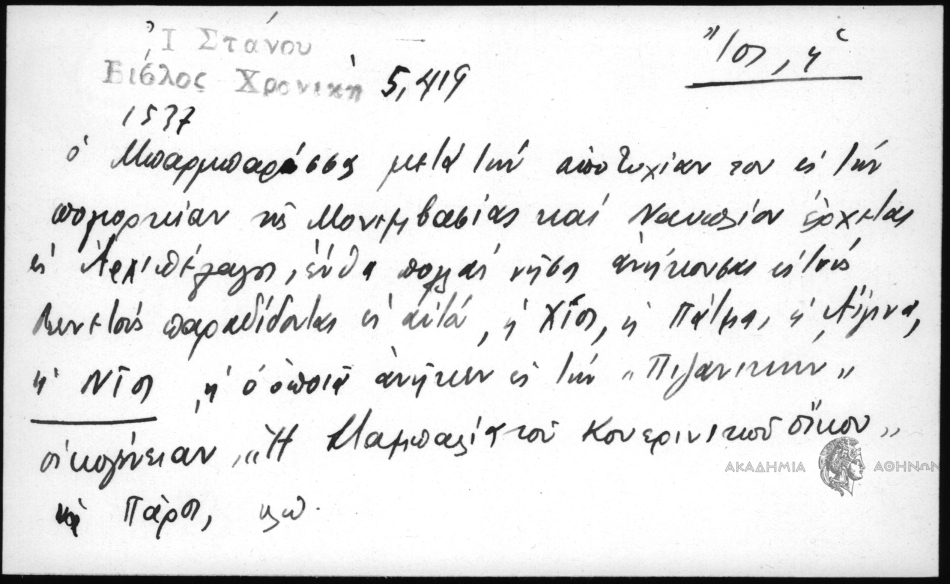 Ἰ Στάνου
Βίβλος Χρονικὴ 5,419
Ἴος, ἡ
1537
ὁ Μπαρμπαρόσσας μετὰ τὴν ἀποτυχίαν του εἰς τὴν
πολιορκίαν τῆς Μονεμβασίας καὶ Ναυπλίου ἔρχεται
εἰς Ἀρχιπέλαγος, ἔνθα πολλαὶ νῆσοι ἀνήκουσαι εἰς τοὺς
Βενετοὺς παραδίδονται εἰς αὐτό, ἡ Χίος, ἡ Πάτμος, ἡ Αἴγινα,
ἡ Νῖος, ἡ ὁποία ἀνῆκεν εἰς τὴν „Πιζανικήν„
οἰκογένειαν, „Ἡ τοῦ οἴκου„
Πάρος, κλπ.
ΑΚΑΔΗΜΙΑ ΑΘΗΝΩΝ